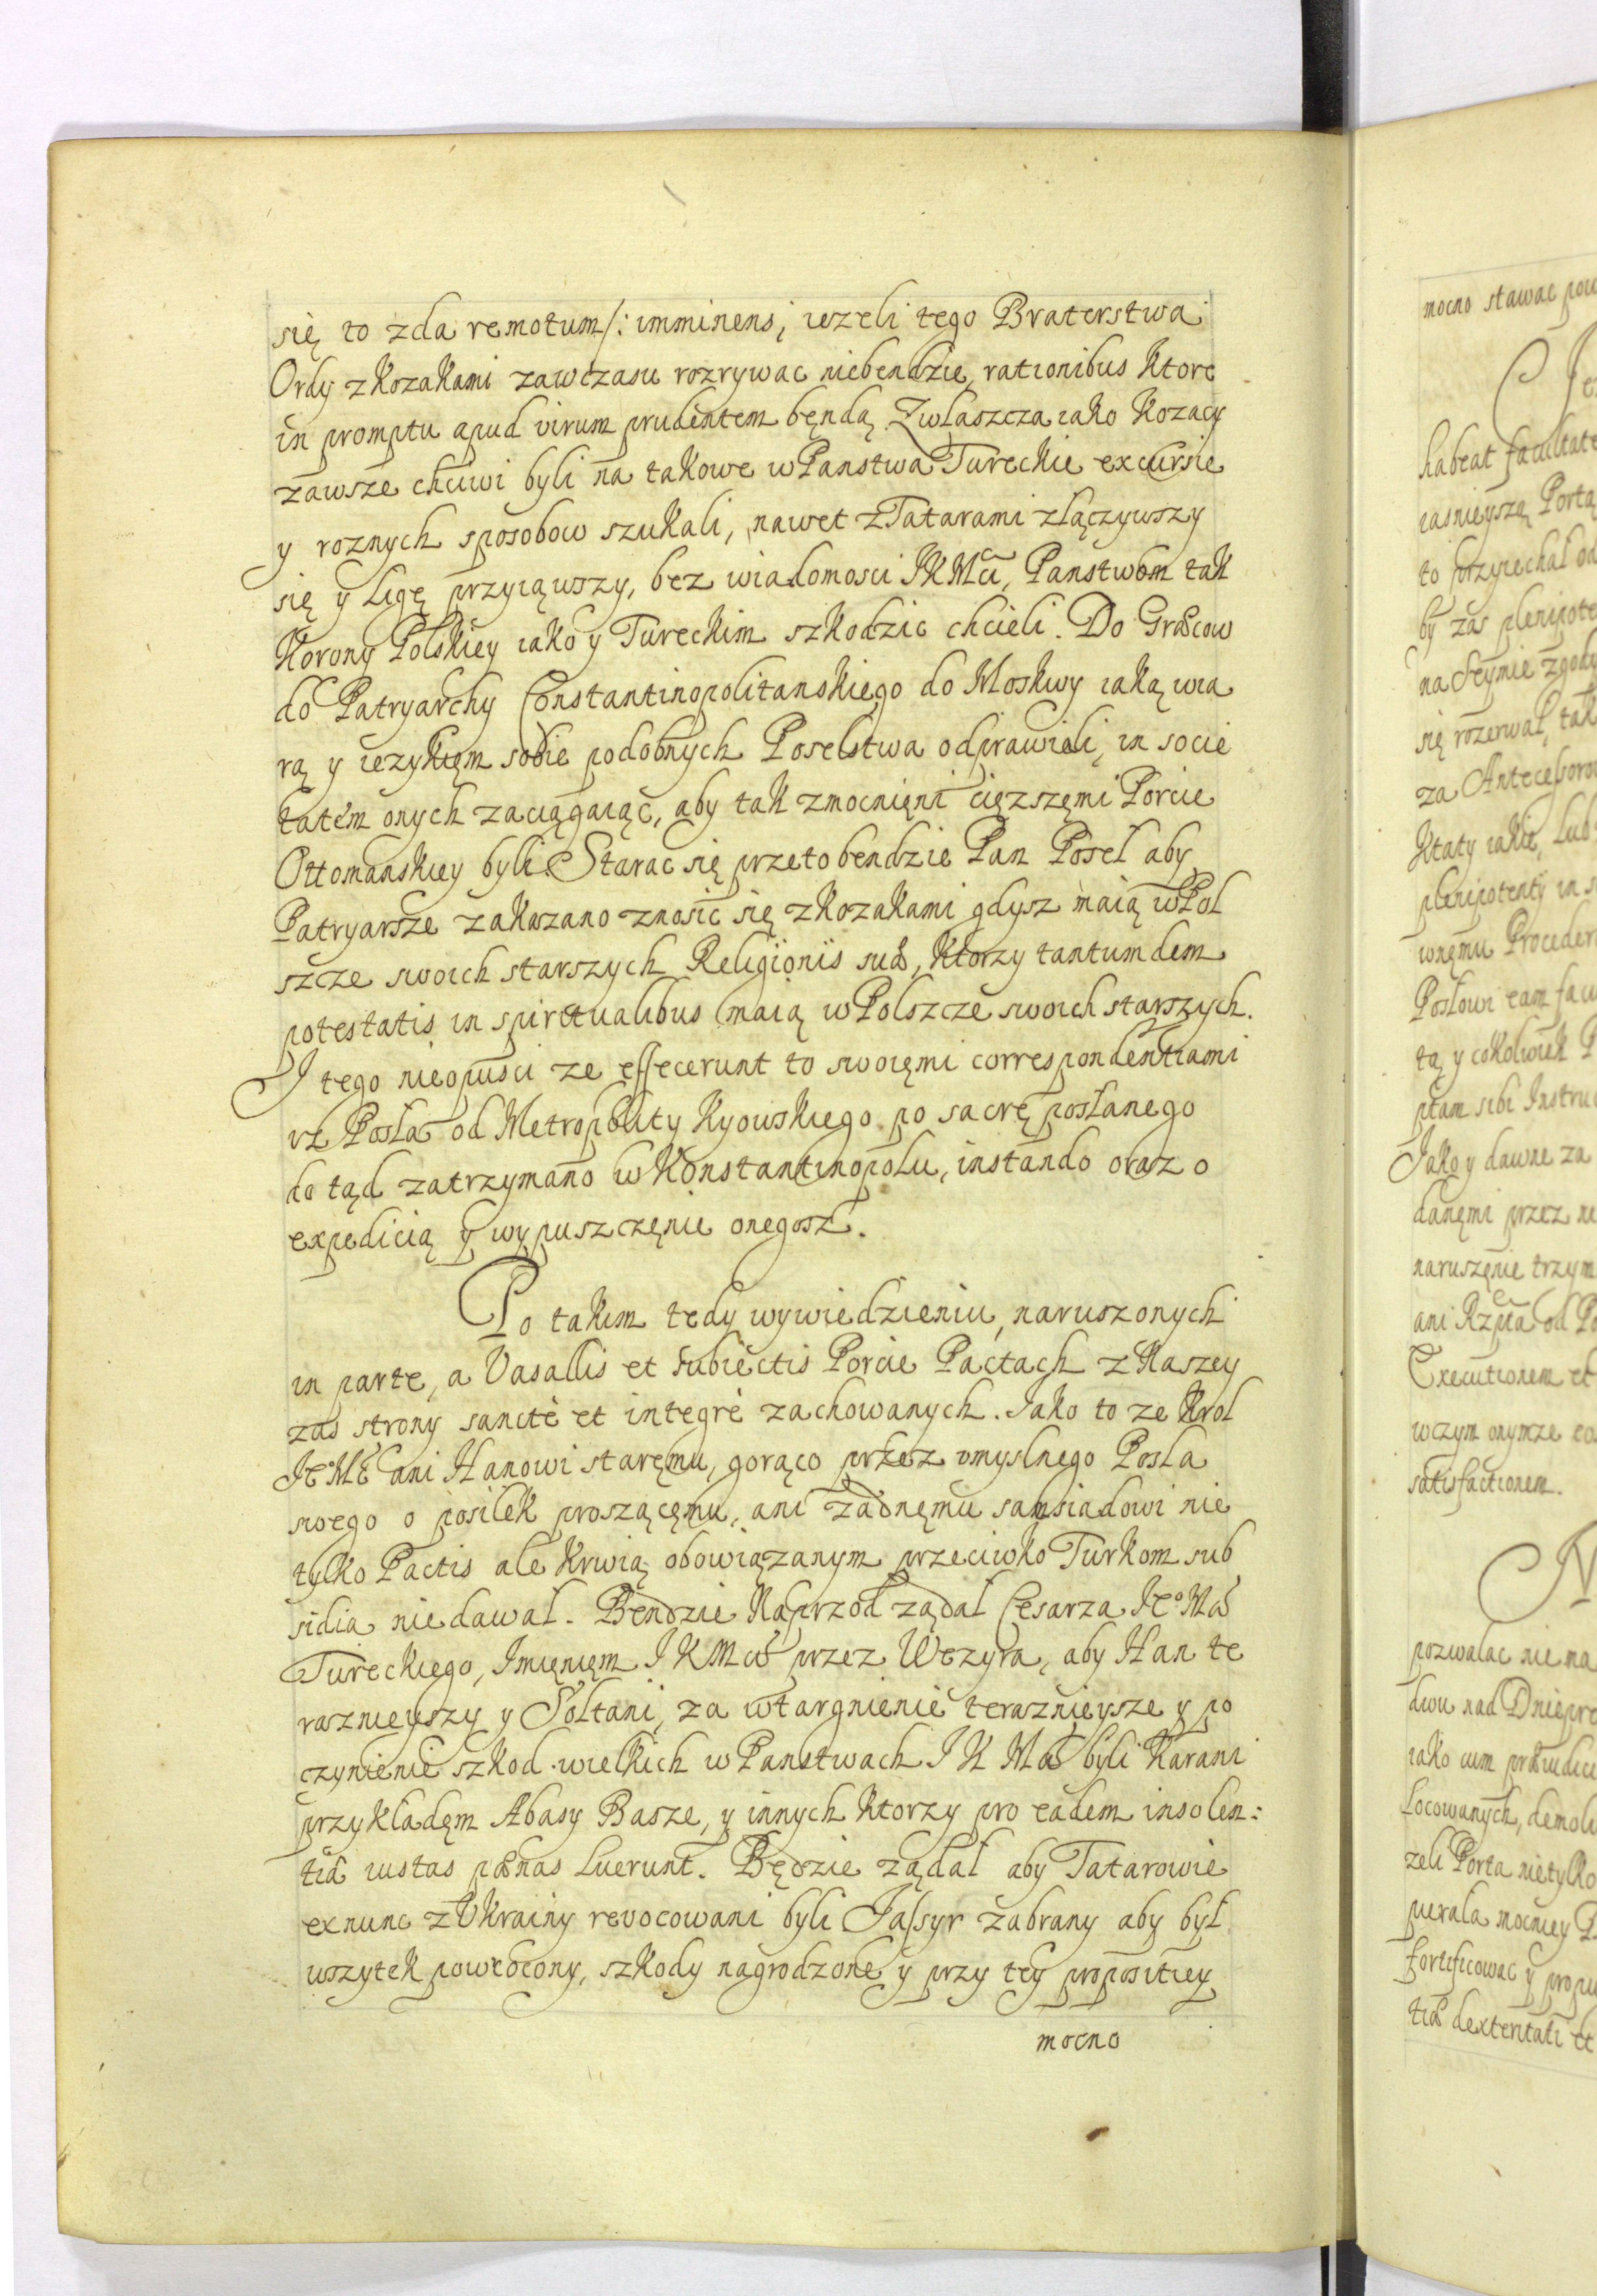 się to zda remotum /: imminens, iezeli tego Braterstwa
Ordy z Kozakami zawczasu rozrywac niebendzie, rationibus Ktore
in promptu apud virum prudentem bęndą. Zwłaszcza iako Kozacy
zawsze chciwi byli na takowe w Panstwa Tureckie excursie
y roznych sposobow szukali, nawet z Tatarami złączywszy
się y Ligę przyiąwszy, bez wiadomosci JKMci, Panstwom tak
Korony Polskiey iako y Tureckim szkodzic chcieli. Do Græcow
do Patryarchy Constantinopolitanskiego do Moskwy iaką wia
rą y ięzykięm sobie podobnych Poselstwa odprawiali, in socie
tatem onych zaciągaiąc, aby tak zmocnięni cięzszęmi Porcie
Ottomanskiey byli. Starac się przeto bendzie Pan Poseł aby
Patryarsze zakazano znosic się z kozakami gdysz maią w Pol
szcze swoich starszych Religionis suæ, Ktorzy tantumdem
potestatis in spiritualibus maią w Polszcze swoich starszych.
I tego nieopusci ze effecerunt to swoięmi correspondentiami
iz Posła od Metropolity Kyowskiego po sacrę posłanego
do tąd zatrzymano w Konstantinopolu, instando oraz o
expedicią y wypuszczęnie onegosz.
Po takim tedy wywiedzieniu, naruszonych
in parte, a Vasallis et subiectis Porcie Pactach z Naszey
zas strony sanctè et integrè zachowanych. Jako to ze Krol
JeoMć ani Hanowi staręmu, gorąco przez umyslnego Posła
swego o posiłek proszącęmu, ani zadnęmu sąmsiadowi nie
tylko Pactis ale Krwią obowiązanym przeciwko Turkom sub
sidia niedawał. Bendzie Naprzod ządał Cesarza JeoMci
Tureckiego, Imięnięm JKMci przez Wezyra, aby Han te
raznieyszy y Sołtani, za wtargnienie teraznieysze y po
czynienie szkod wielkich w Panstwach JKMci byli Karani
przykładęm Abasy Basze, y innych Ktorzy pro eadem insolen:
tiâ iustas pænas luerunt. Będzie ządał aby Tatarowie
exnunc z Ukrainy revocowani byli Jassyr zabrany aby był
wszytek powrocony, szkody nagrodzone y przy tey propositiey
mocno
mocno stawac
habeat
iasnieyszą Portą
to przyiechał od
by zas
na Seymie zgody
się rozerwał, tak
za
Ktaty iakie, lub
plenipotenty in
wnęmu
Posłowi eam
tą y cokolwiek
ptam sibi
Jako y dawne za
danęmi przez
naruszęnie trzym
ani Rzpta od
Executionem et
wczym onymze
satisfactionem.
pozwalac nie na
dwu nad
iako cum
locowanych,
zeli Porta nietylko
pierała mocniey
fortificowac y
tiæ dexteritati et